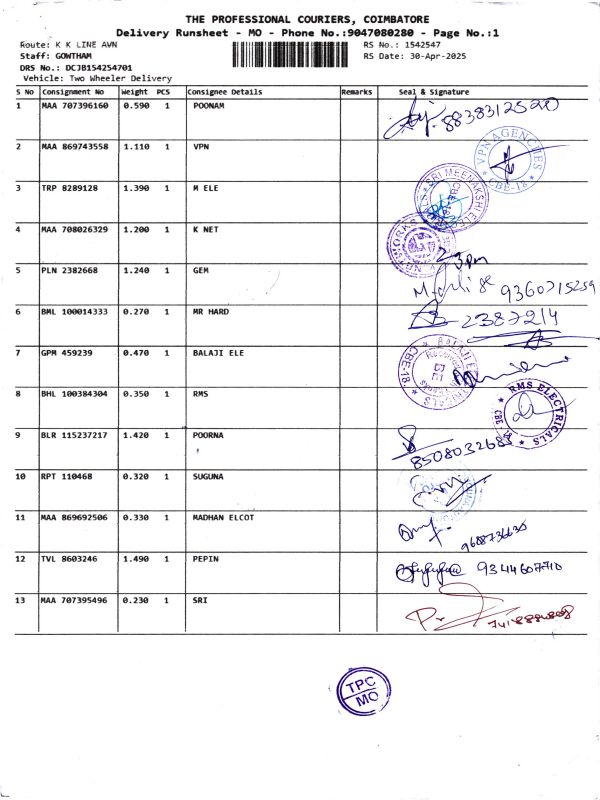 THE PROFESSIONAL COURIERS, COIMBATORE
Delivery Runsheet - MO - Phone No.:9047080280 - Page No.:1
Route: K K LINE AWN
RS No.: 1542547
Staff: GOWTHAM
RS Date: 30-Apr-2025
DRS No.: DCJB154254701
Vehicle: Two Wheeler Delivery
S No Consignment No Weight PCS Consignee Details Remarks Seal & Signature
1 MAA 707396160 0.590 1 POONAM 8838312520
2 MAA 869743558 1.110 1 VPN VPN AGENCIES * CBE-18 *
3 TRP 8289128 1.390 1 M ELE SRI MEENAKSHI
4 MAA 708026329 1.200 1 K NET NETWORKS
5 PLN 2382668 1.240 1 GEM 9360715259
6 BML 100014333 0.270 1 MR HARD 2387214
7 GPM 459239 0.470 1 BALAJI ELE BALAJI CBE-18
8 BHL 100384304 0.350 1 RMS RMS ELECTRICALS
9 BLR 115237217 1.420 1 POORNA
10 RPT 110468 0.320 1 SUGUNA
11 MAA 869692506 0.330 1 MADHAN ELCOT
12 TVL 8603246 1.490 1 PEPIN 9344607710
13 MAA 707395496 0.230 1 SRI
TPC
MO